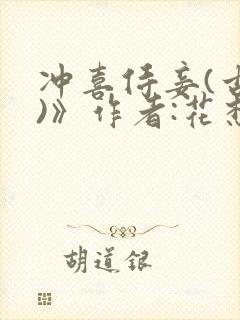 冲喜侍妾(古
)》作者:花
胡道银